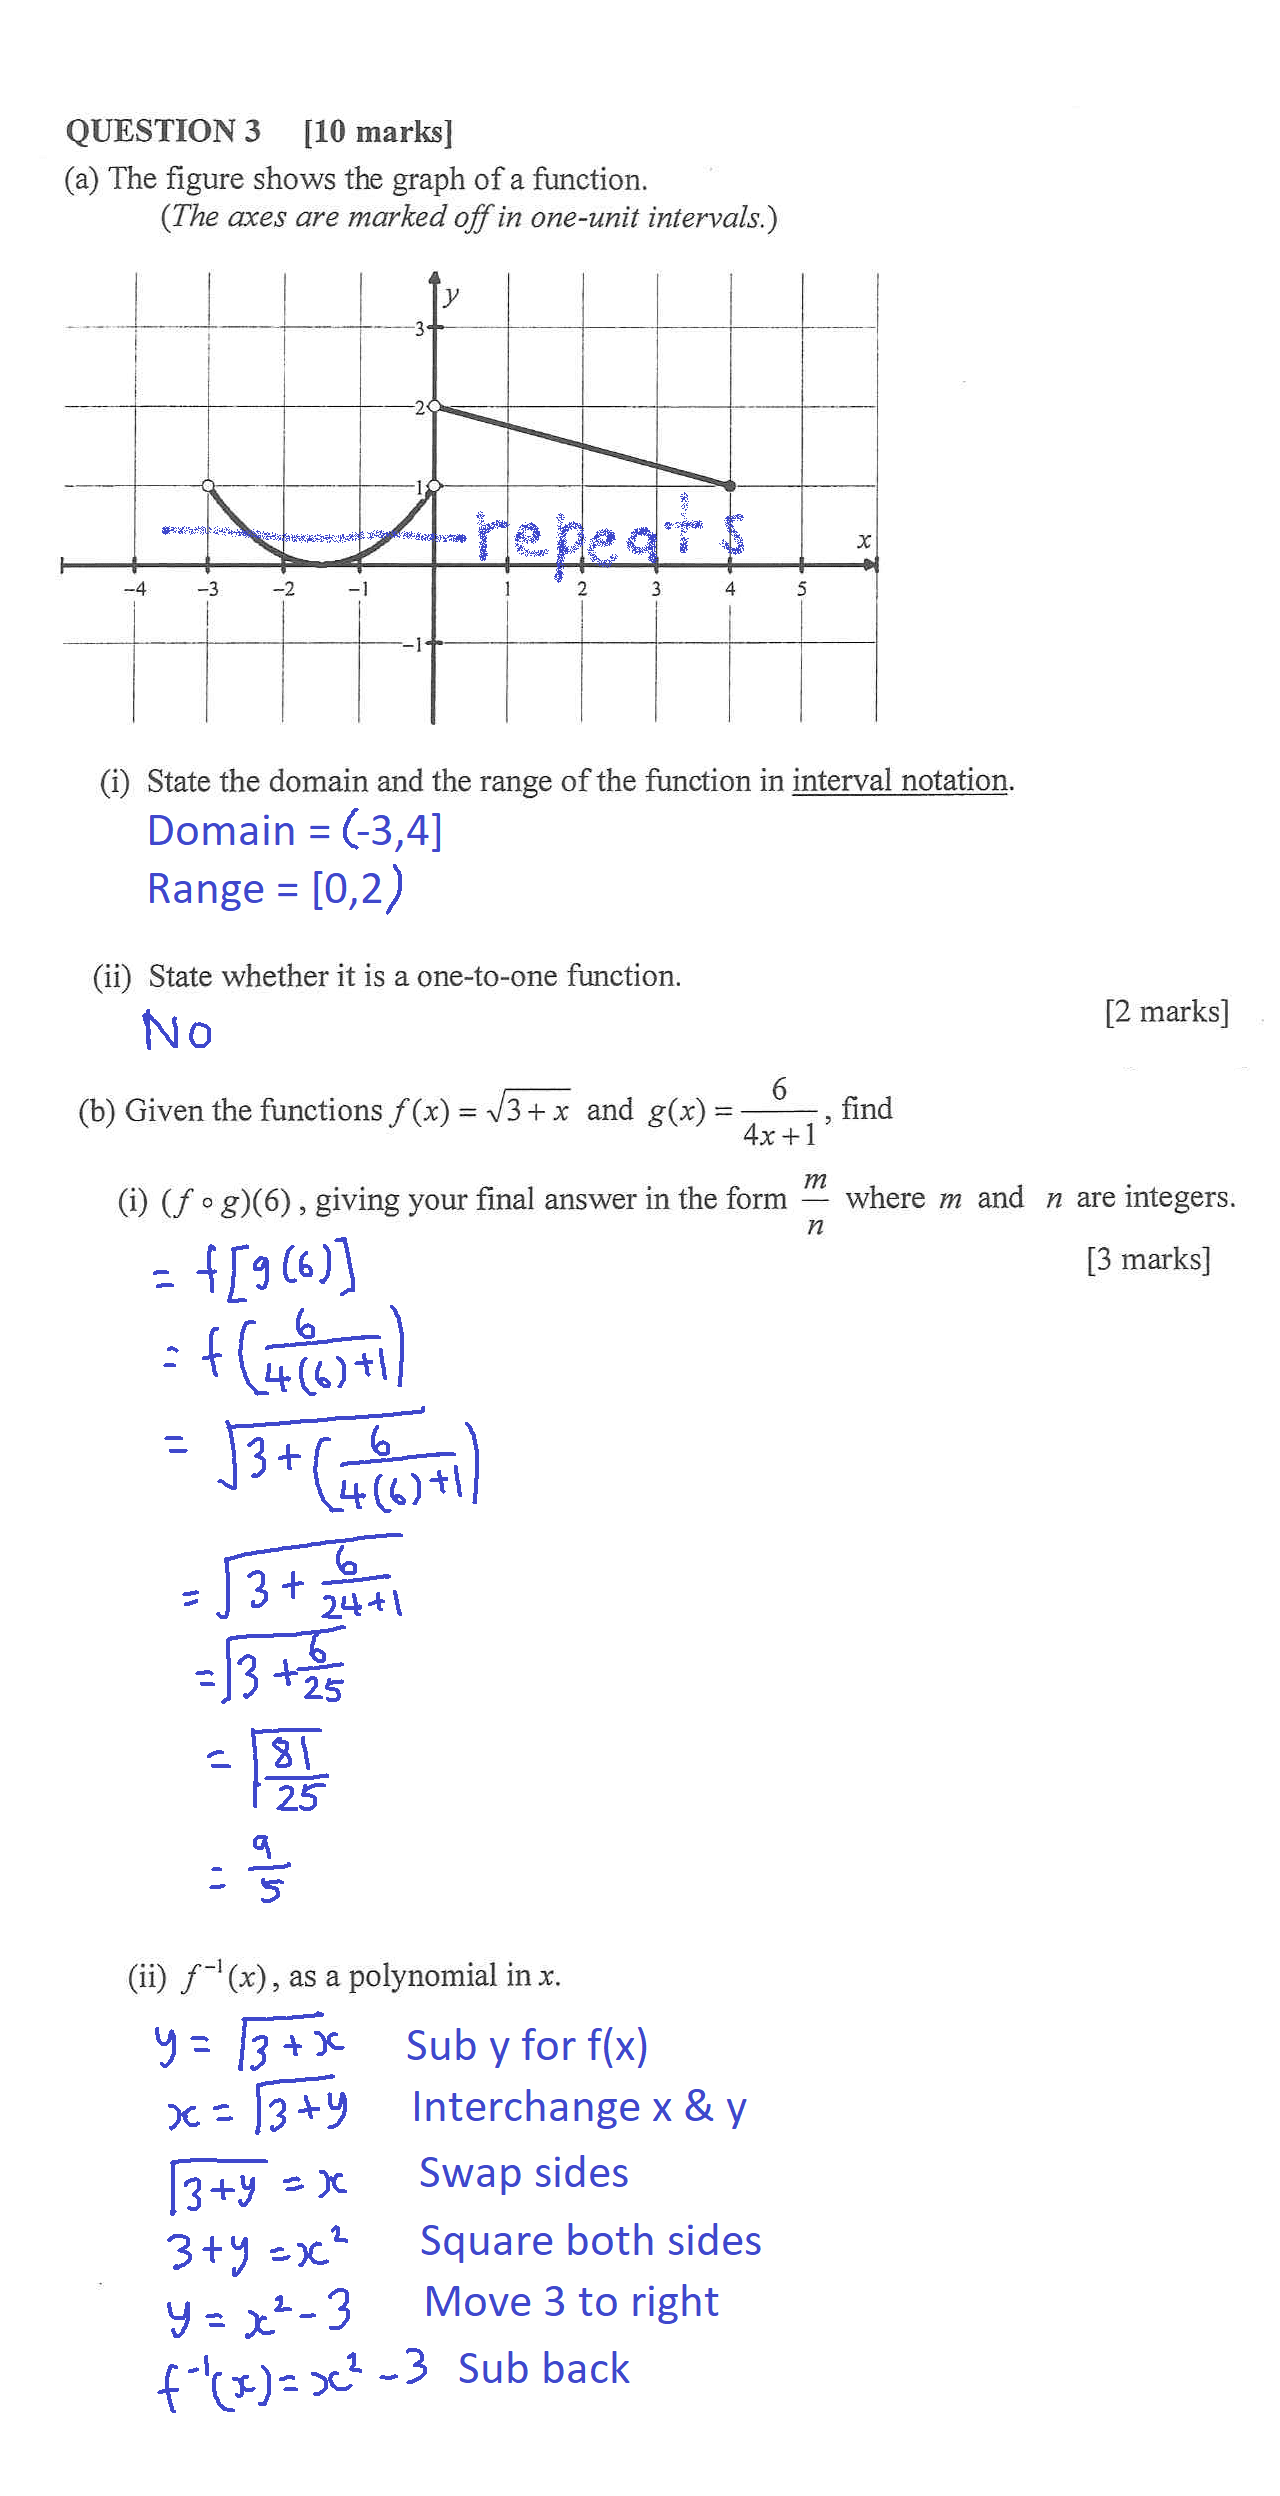 QUESTION 3 [10 marks]
(a) The figure shows the graph of a function.
(The axes are marked off in one-unit intervals.)
y
3
2
1
repeats
x
-4 -3 -2 -1 1 2 3 4 5
-1
(i) State the domain and the range of the function in interval notation.
Domain = (-3,4]
Range = [0,2)
(ii) State whether it is a one-to-one function.
[2 marks]
No
(b) Given the functions f(x) = √(3 + x) and g(x) = 6/(4x + 1), find
(i) (f ∘ g)(6), giving your final answer in the form m/n where m and n are integers.
[3 marks]
= f[g(6)]
= f(6/(4(6)+1))
= √(3 + (6/(4(6)+1)))
= √(3 + 6/(24+1))
= √(3 + 6/25)
= √(81/25)
= 9/5
(ii) f⁻¹(x), as a polynomial in x.
y = √(3 + x) Sub y for f(x)
x = √(3 + y) Interchange x & y
√(3 + y) = x Swap sides
3 + y = x² Square both sides
y = x² - 3 Move 3 to right
f⁻¹(x) = x² - 3 Sub back